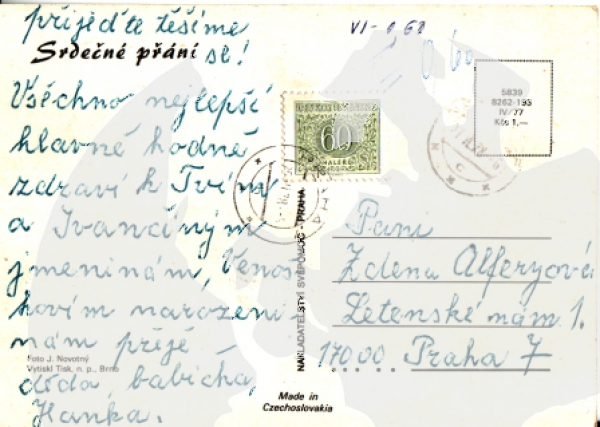 přijeďte těšíme
Srdečné přání se!
VI-0,60
5839
8262-193
IV/77
Kčs 1,—
60
HALÉŘŮ
Všechno nejlepší
hlavně hodně
zdraví k Tvým
a Ivančiným
jmeninám, Venoš
kovím narozeni-
nám přejí -
děda, babička,
Hanka.
Foto J. Novotný
Vytiskl Tisk, n. p., Brno
NAKLADATELSTVÍ SVÉPOMOC - PRAHA
Made in
Czechoslovakia
Paní
Zdena Alferyová
Letenské nám 1.
17000 Praha 7